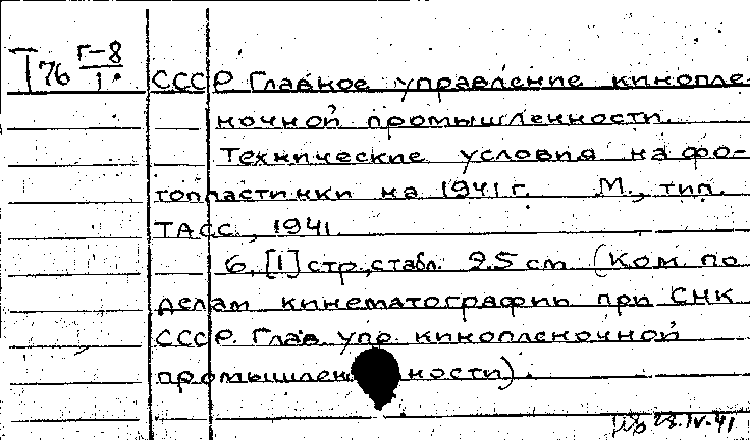 Т76 Г-8
1.
СССР. Главное управление кинопле-
ночной промышленности.
Технические условия на фо-
топластинки на 1941 г. М., тип.
ТАСС, 1941.
6, [1] стр., с табл. 25 cm (Ком. по
делам кинематографии при СНК
СССР. Глав. упр. кинопленочной
промышленности).
28.IV.41